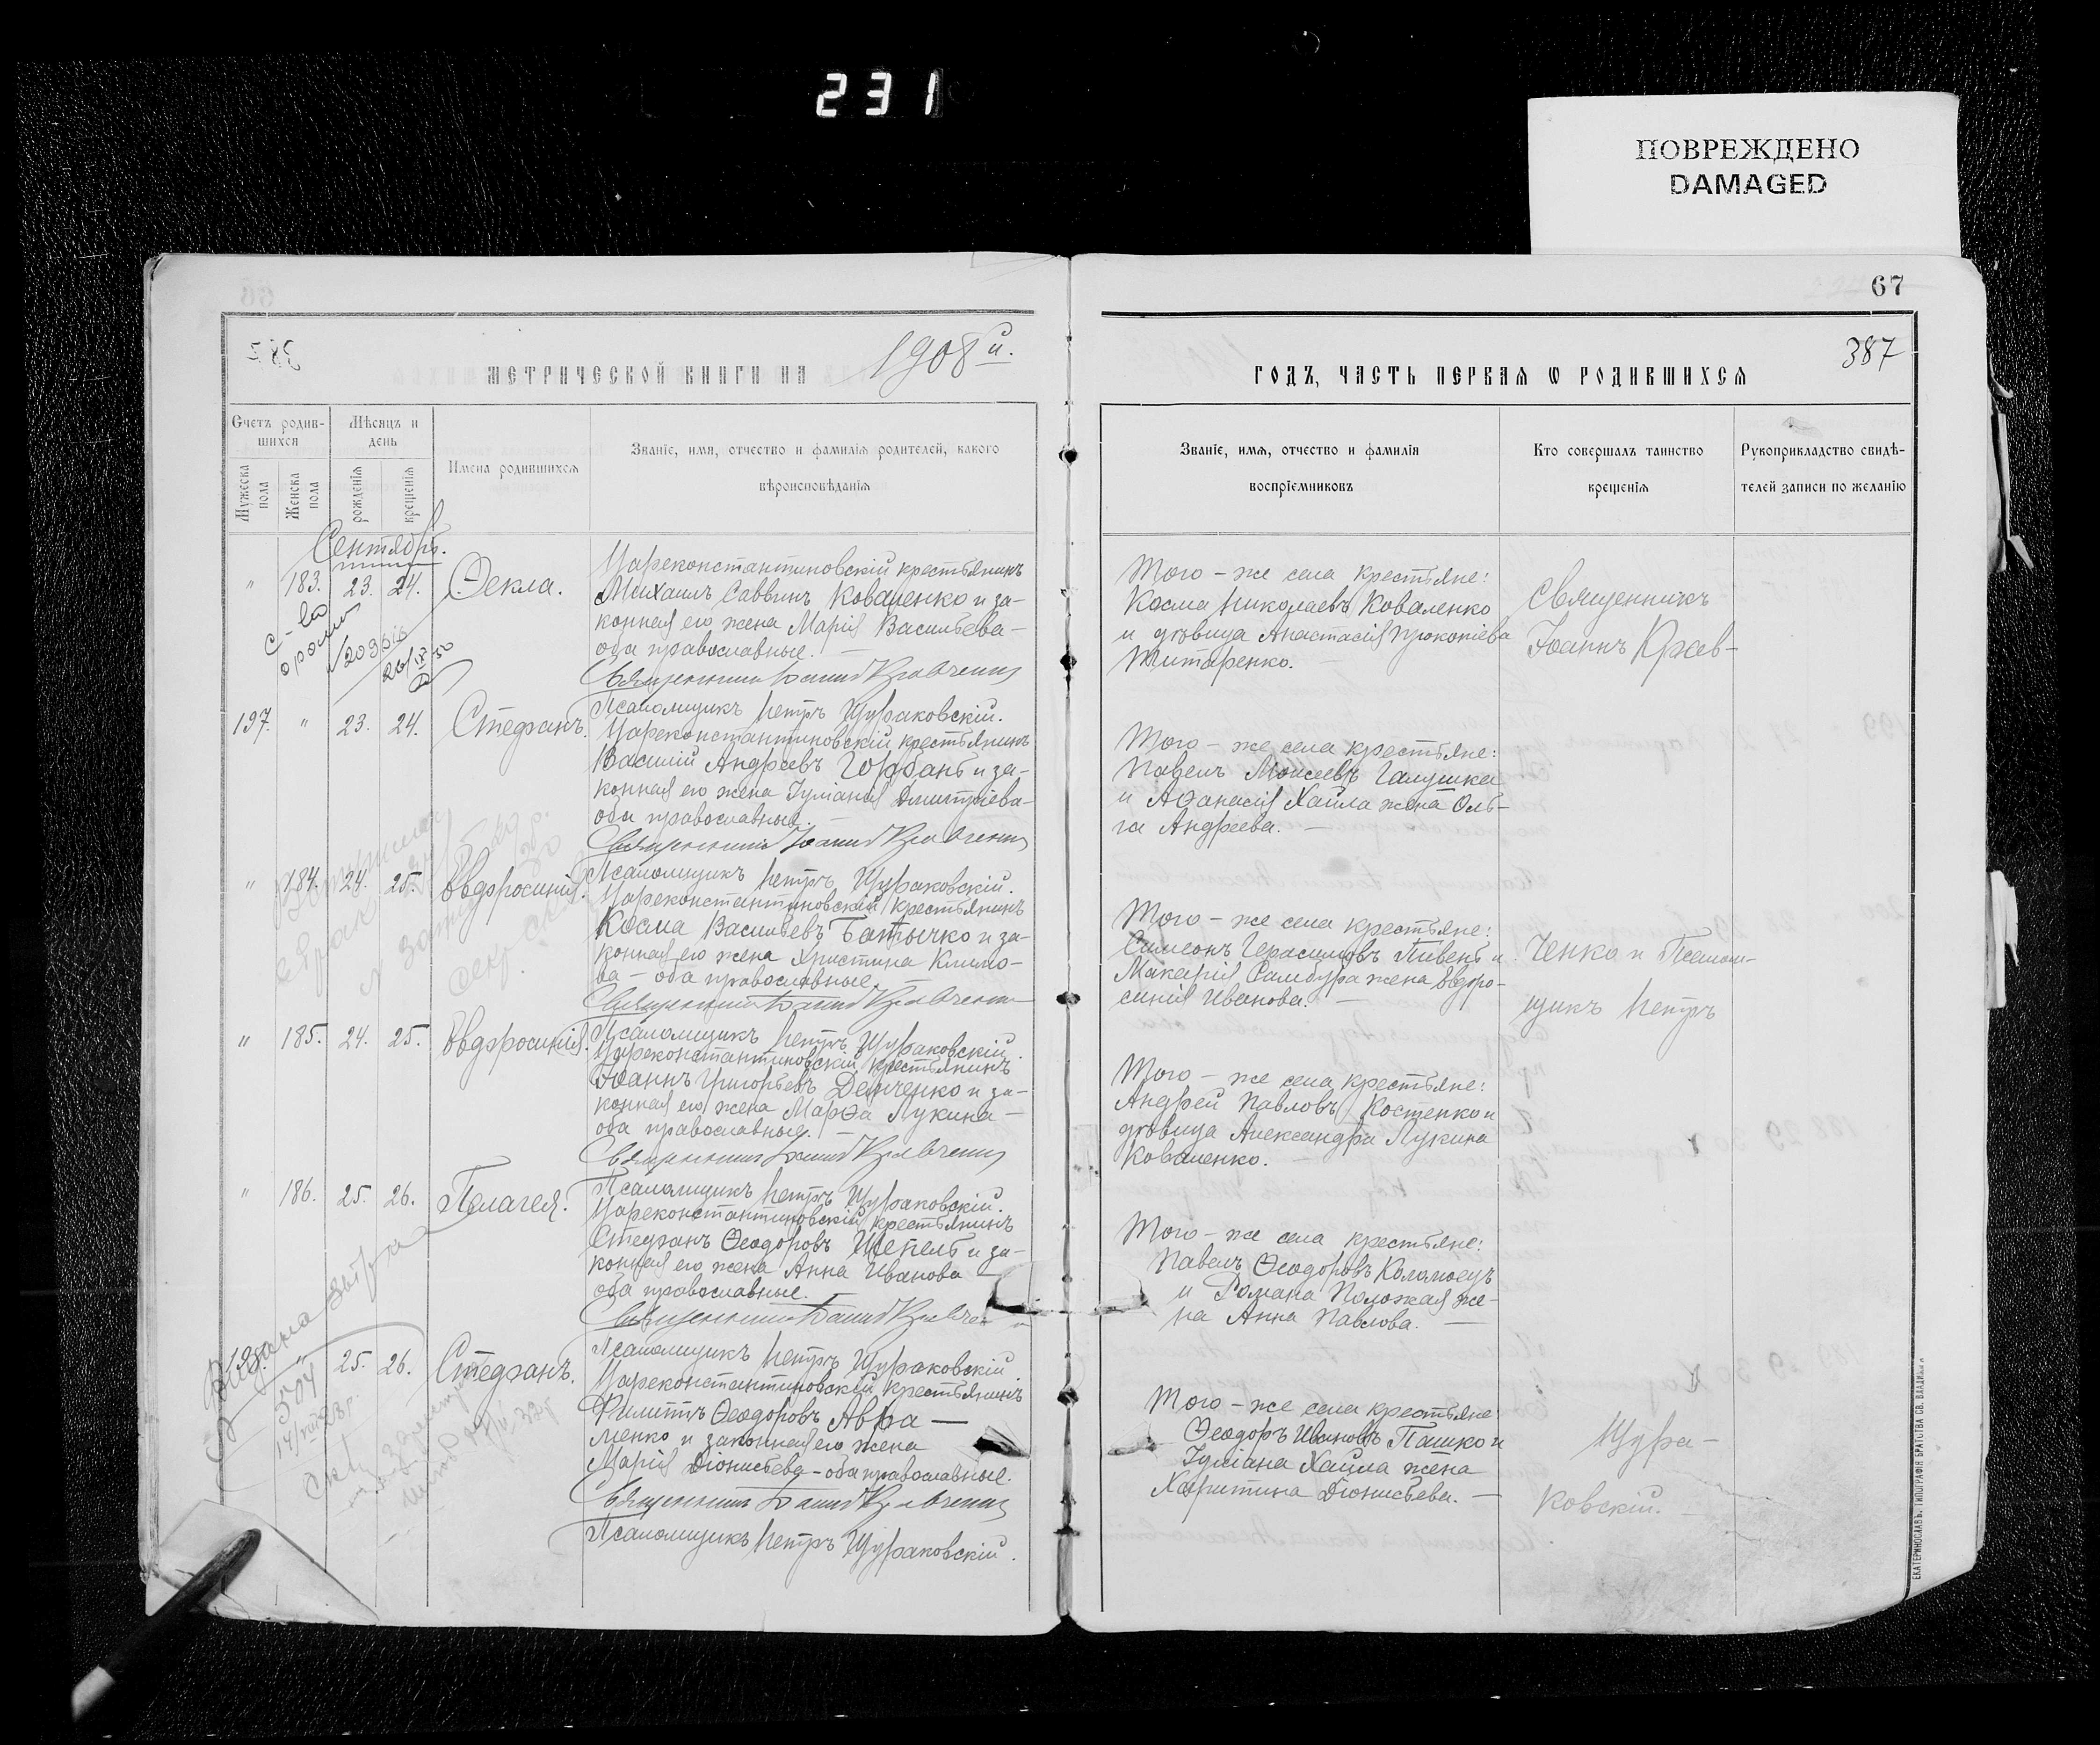 231
ПОВРЕЖДЕНО
DAMAGED
67
387
МЕТРИЧЕСКОЙ КНИГИ НА 1908й.
ГОДЪ, ЧАСТЬ ПЕРВАЯ Ѡ РОДИВШИХСЯ
Счетъ родив-
шихся
Мѣсяцъ и
день
Мужеска
пола
Женска
пола
рожденія
крещенія
Имена родившихся
Званіе, имя, отчество и фамилія родителей, какого
вѣроисповѣданія
Званіе, имя, отчество и фамилія
воспріемниковъ
Кто совершалъ таинство
крещенія
Рукоприкладство свидѣ-
телей записи по желанію
Сентябрь.
" 183. 23. 24. Ѳекла.
Цареконстантиновскій крестьянинъ
Михаилъ Саввинъ Коваленко и за-
конная его жена Марія Васильева -
оба православные. -
Священникъ Іоаннъ Кравченко
Псаломщикъ Петръ Щураковскій.
Того - же села крестьяне:
Косма Николаевъ Коваленко
и дѣвица Анастасія Прокопіева
Титаренко. -
Священникъ
Іоаннъ Крав-
197. " 23. 24. Стефанъ.
Цареконстантиновскій крестьянинъ
Василій Андреевъ Горбань и за-
конная его жена Іуліанія Димитріева -
оба православные. -
Священникъ Іоаннъ Кравченко
Псаломщикъ Петръ Щураковскій.
Того - же села крестьяне:
Павелъ Моисеевъ Галушка
и Аѳанасія Хайла жена Оль-
га Андреева. -
" 184. 24. 25. Евдфросинія.
Цареконстантиновскій крестьянинъ
Косма Васильевъ Батычко и за-
конная его жена Христина Климо-
ва - оба православные. -
Священникъ Іоаннъ Кравченко
Псаломщикъ Петръ Щураковскій.
Того - же села крестьяне:
Симеонъ Герасимовъ Пивень и
Макарія Самбура жена Евдфро-
синія Иванова. -
ченко и Псалом-
щикъ Петръ
" 185. 24. 25. Евдфросинія.
Цареконстантиновскій крестьянинъ
Іоаннъ Григорьевъ Демченко и за-
конная его жена Марѳа Лукина -
оба православные. -
Священникъ Іоаннъ Кравченко
Псаломщикъ Петръ Щураковскій.
Того - же села крестьяне:
Андрей Павловъ Костенко и
дѣвица Александра Лукина
Коваленко. -
" 186. 25. 26. Пелагея.
Цареконстантиновскій крестьянинъ
Стефанъ Ѳеодоровъ Шепель и за-
конная его жена Анна Иванова -
оба православные. -
Священникъ Іоаннъ Кравченко
Псаломщикъ Петръ Щураковскій
Того - же села крестьяне:
Павелъ Ѳеодоровъ Коломоецъ
и Романа Положая же-
на Анна Павлова. -
25. 26. Стефанъ.
Цареконстантиновскій крестьянинъ
Филиппъ Ѳеодоровъ Авра -
менко и законная его жена
Марія Діонисьева - оба православные.
Священникъ Іоаннъ Кравченко
Псаломщикъ Петръ Щураковскій.
Того - же села крестьяне:
Ѳеодоръ Ивановъ Пашко и
Іуліана Хайла жена
Харитина Діонисьева. -
Щура-
ковскій. -
ЕКАТЕРИНОСЛАВЪ. ТИПОГРАФІЯ БРАТСТВА СВ. ВЛАДИМ